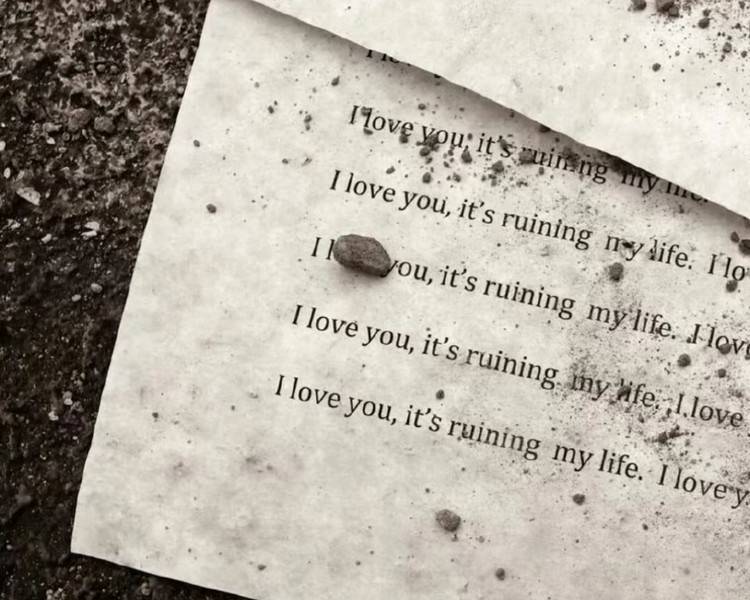 I love you, it's ruining my life.
I love you, it's ruining my life. I lo
I l you, it's ruining my life. I love
I love you, it's ruining my life. I love
I love you, it's ruining my life. I love y